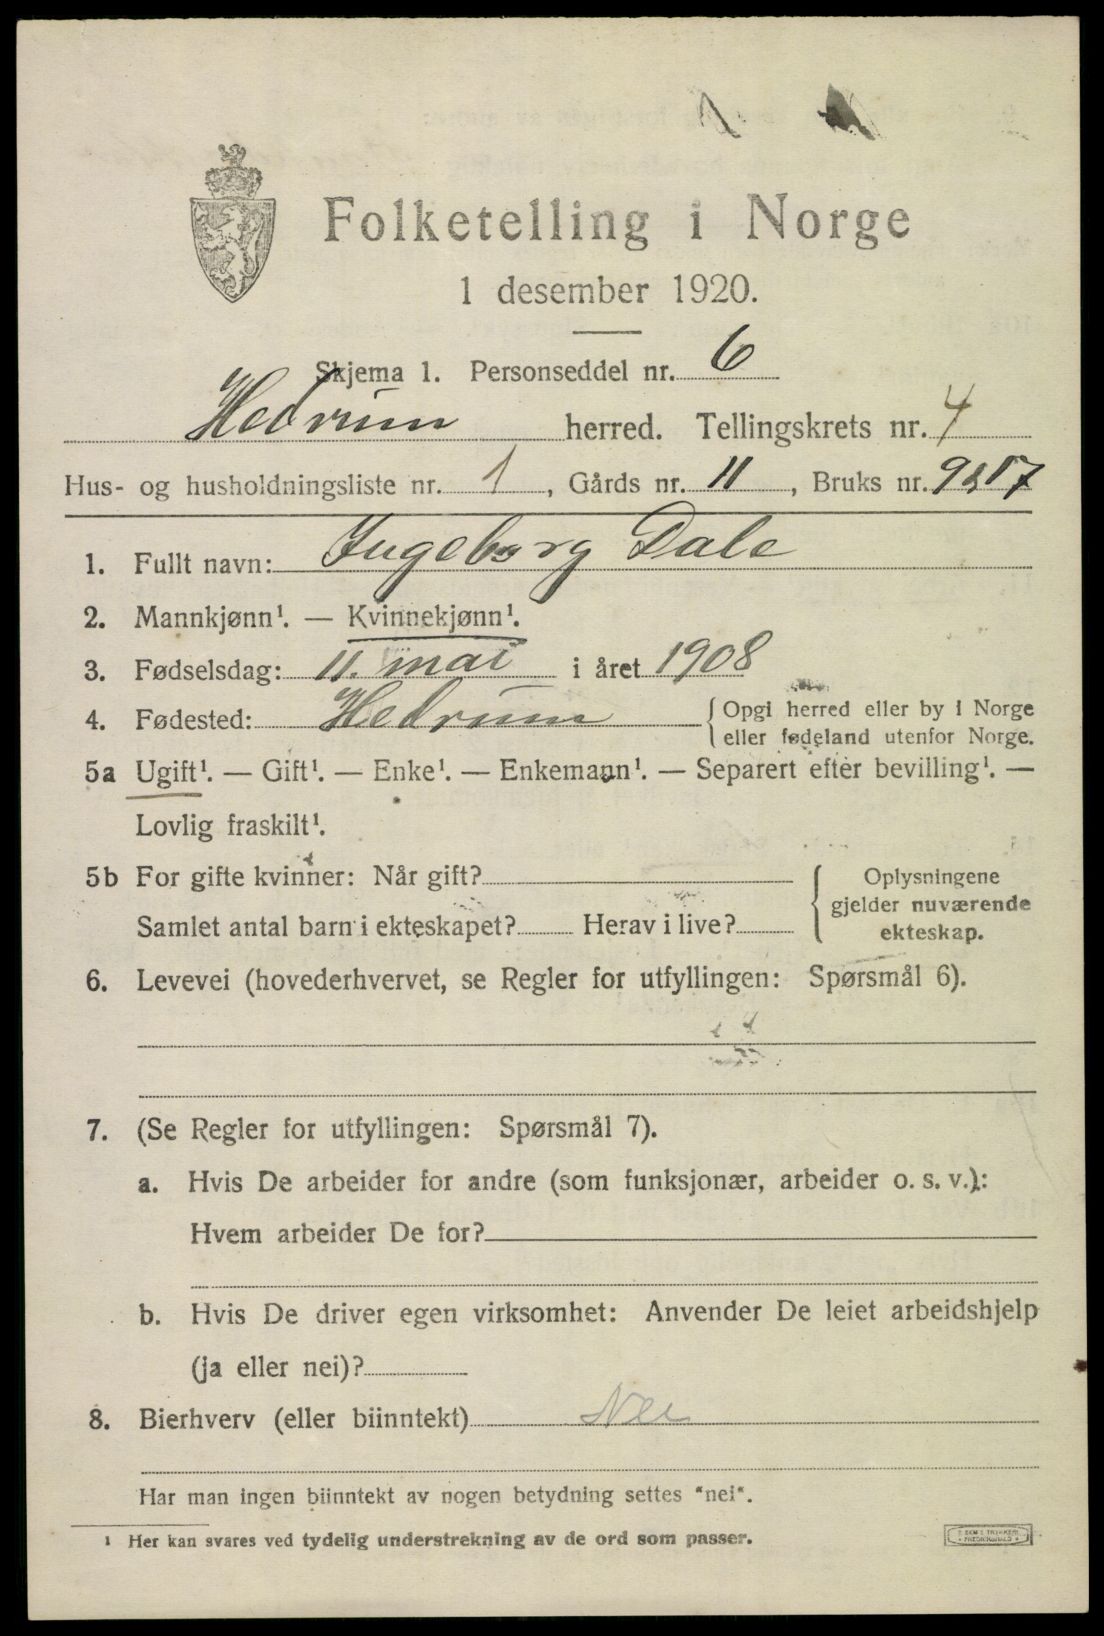 Folketelling i Norge
1 desember 1920.
Skjema 1. Personseddel nr. 6
Hedrum herred. Tellingskrets nr. 4
Hus- og husholdningsliste nr. 1, Gårds nr. 11, Bruks nr. 9 & 17
1. Fullt navn: Ingeborg Dale
2. Mannkjønn¹. — Kvinnekjønn¹.
3. Fødselsdag: 11. mai i året 1908
4. Fødested: Hedrum {Opgi herred eller by i Norge
eller fødeland utenfor Norge.
5a Ugift¹. — Gift¹. — Enke¹. — Enkemann¹. — Separert efter bevilling¹. —
Lovlig fraskilt¹.
5b For gifte kvinner: Når gift?
Samlet antal barn i ekteskapet? Herav i live?
{Oplysningene
gjelder nuværende
ekteskap.
6. Levevei (hovederhvervet, se Regler for utfyllingen: Spørsmål 6).
7. (Se Regler for utfyllingen: Spørsmål 7).
a. Hvis De arbeider for andre (som funksjonær, arbeider o. s. v.):
Hvem arbeider De for?
b. Hvis De driver egen virksomhet: Anvender De leiet arbeidshjelp
(ja eller nei)?
8. Bierhverv (eller biinntekt) Nei
Har man ingen biinntekt av nogen betydning settes "nei".
¹ Her kan svares ved tydelig understrekning av de ord som passer.